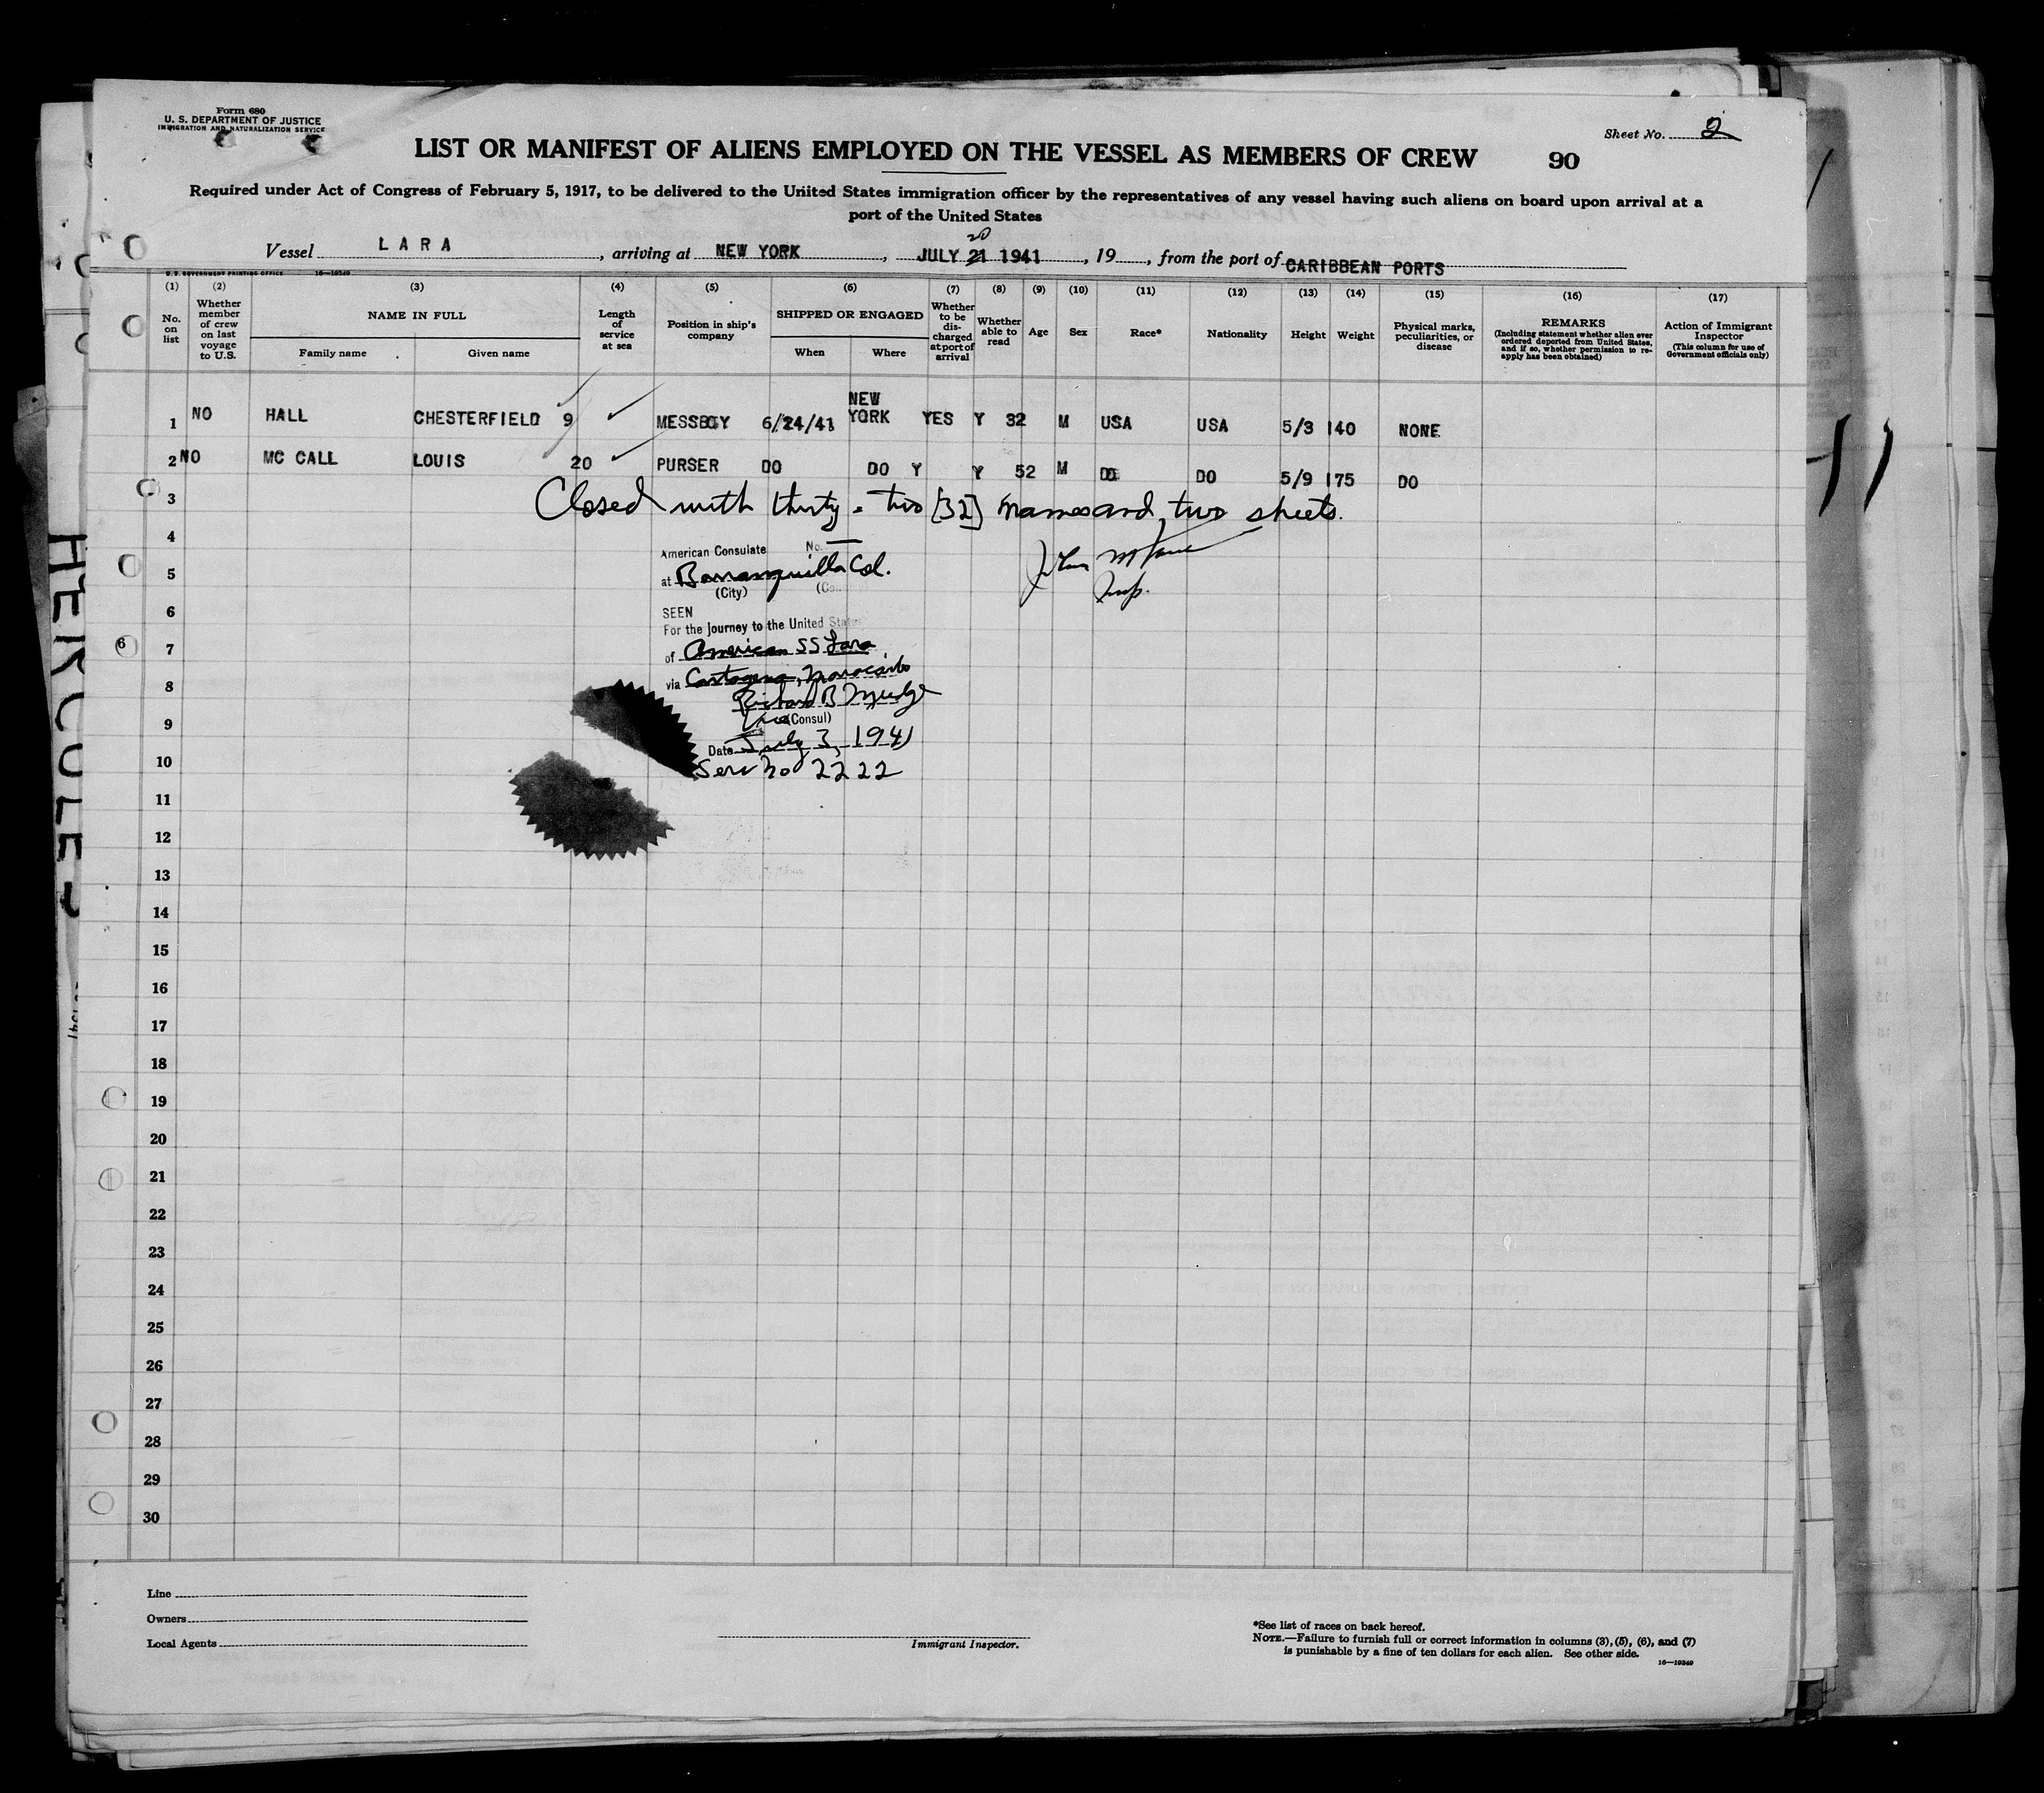 Form 680
U. S. DEPARTMENT OF JUSTICE
IMMIGRATION AND NATURALIZATION SERVICE
Sheet No. 2
LIST OR MANIFEST OF ALIENS EMPLOYED ON THE VESSEL AS MEMBERS OF CREW 90
Required under Act of Congress of February 5, 1917, to be delivered to the United States immigration officer by the representatives of any vessel having such aliens on board upon arrival at a
port of the United States
20
Vessel LARA, arriving at NEW YORK, JULY 21 1941, 19, from the port of CARIBBEAN PORTS
U. S. GOVERNMENT PRINTING OFFICE 16—19349
(1) (2) (3) (4) (5) (6) (7) (8) (9) (10) (11) (12) (13) (14) (15) (16) (17)
No. on list
Whether member of crew on last voyage to U.S.
NAME IN FULL
Family name
Given name
Length of service at sea
Position in ship's company
SHIPPED OR ENGAGED
When
Where
Whether to be discharged at port of arrival
Whether able to read
Age
Sex
Race*
Nationality
Height
Weight
Physical marks, peculiarities, or disease
REMARKS
(Including statement whether alien ever ordered deported from United States, and if so, whether permission to re-apply has been obtained)
Action of Immigrant Inspector
(This column for use of Government officials only)
1 NO HALL CHESTERFIELD 9 MESSBOY 6/24/41 NEW YORK YES Y 32 M USA USA 5/3 140 NONE
2 NO MC CALL LOUIS 20 PURSER DO DO Y Y 52 M DO DO 5/9 175 DO
3 Closed with thirty-two [32] names and two sheets.
4
American Consulate No. —
5
at Barranquilla Col.
(City)
Insp.
6
SEEN
For the journey to the United States
7
of American SS Lara
8
via Cartagena, Maracaibo
Richard B Mudge
9
Vice (Consul)
Date July 3, 1941
10
Serv No 2222
11
12
13
14
15
16
17
18
19
20
21
22
23
24
25
26
27
28
29
30
Line
Owners
Local Agents
Immigrant Inspector.
*See list of races on back hereof.
NOTE.—Failure to furnish full or correct information in columns (3), (5), (6), and (7)
is punishable by a fine of ten dollars for each alien. See other side.
16—19349
6
HERCULE